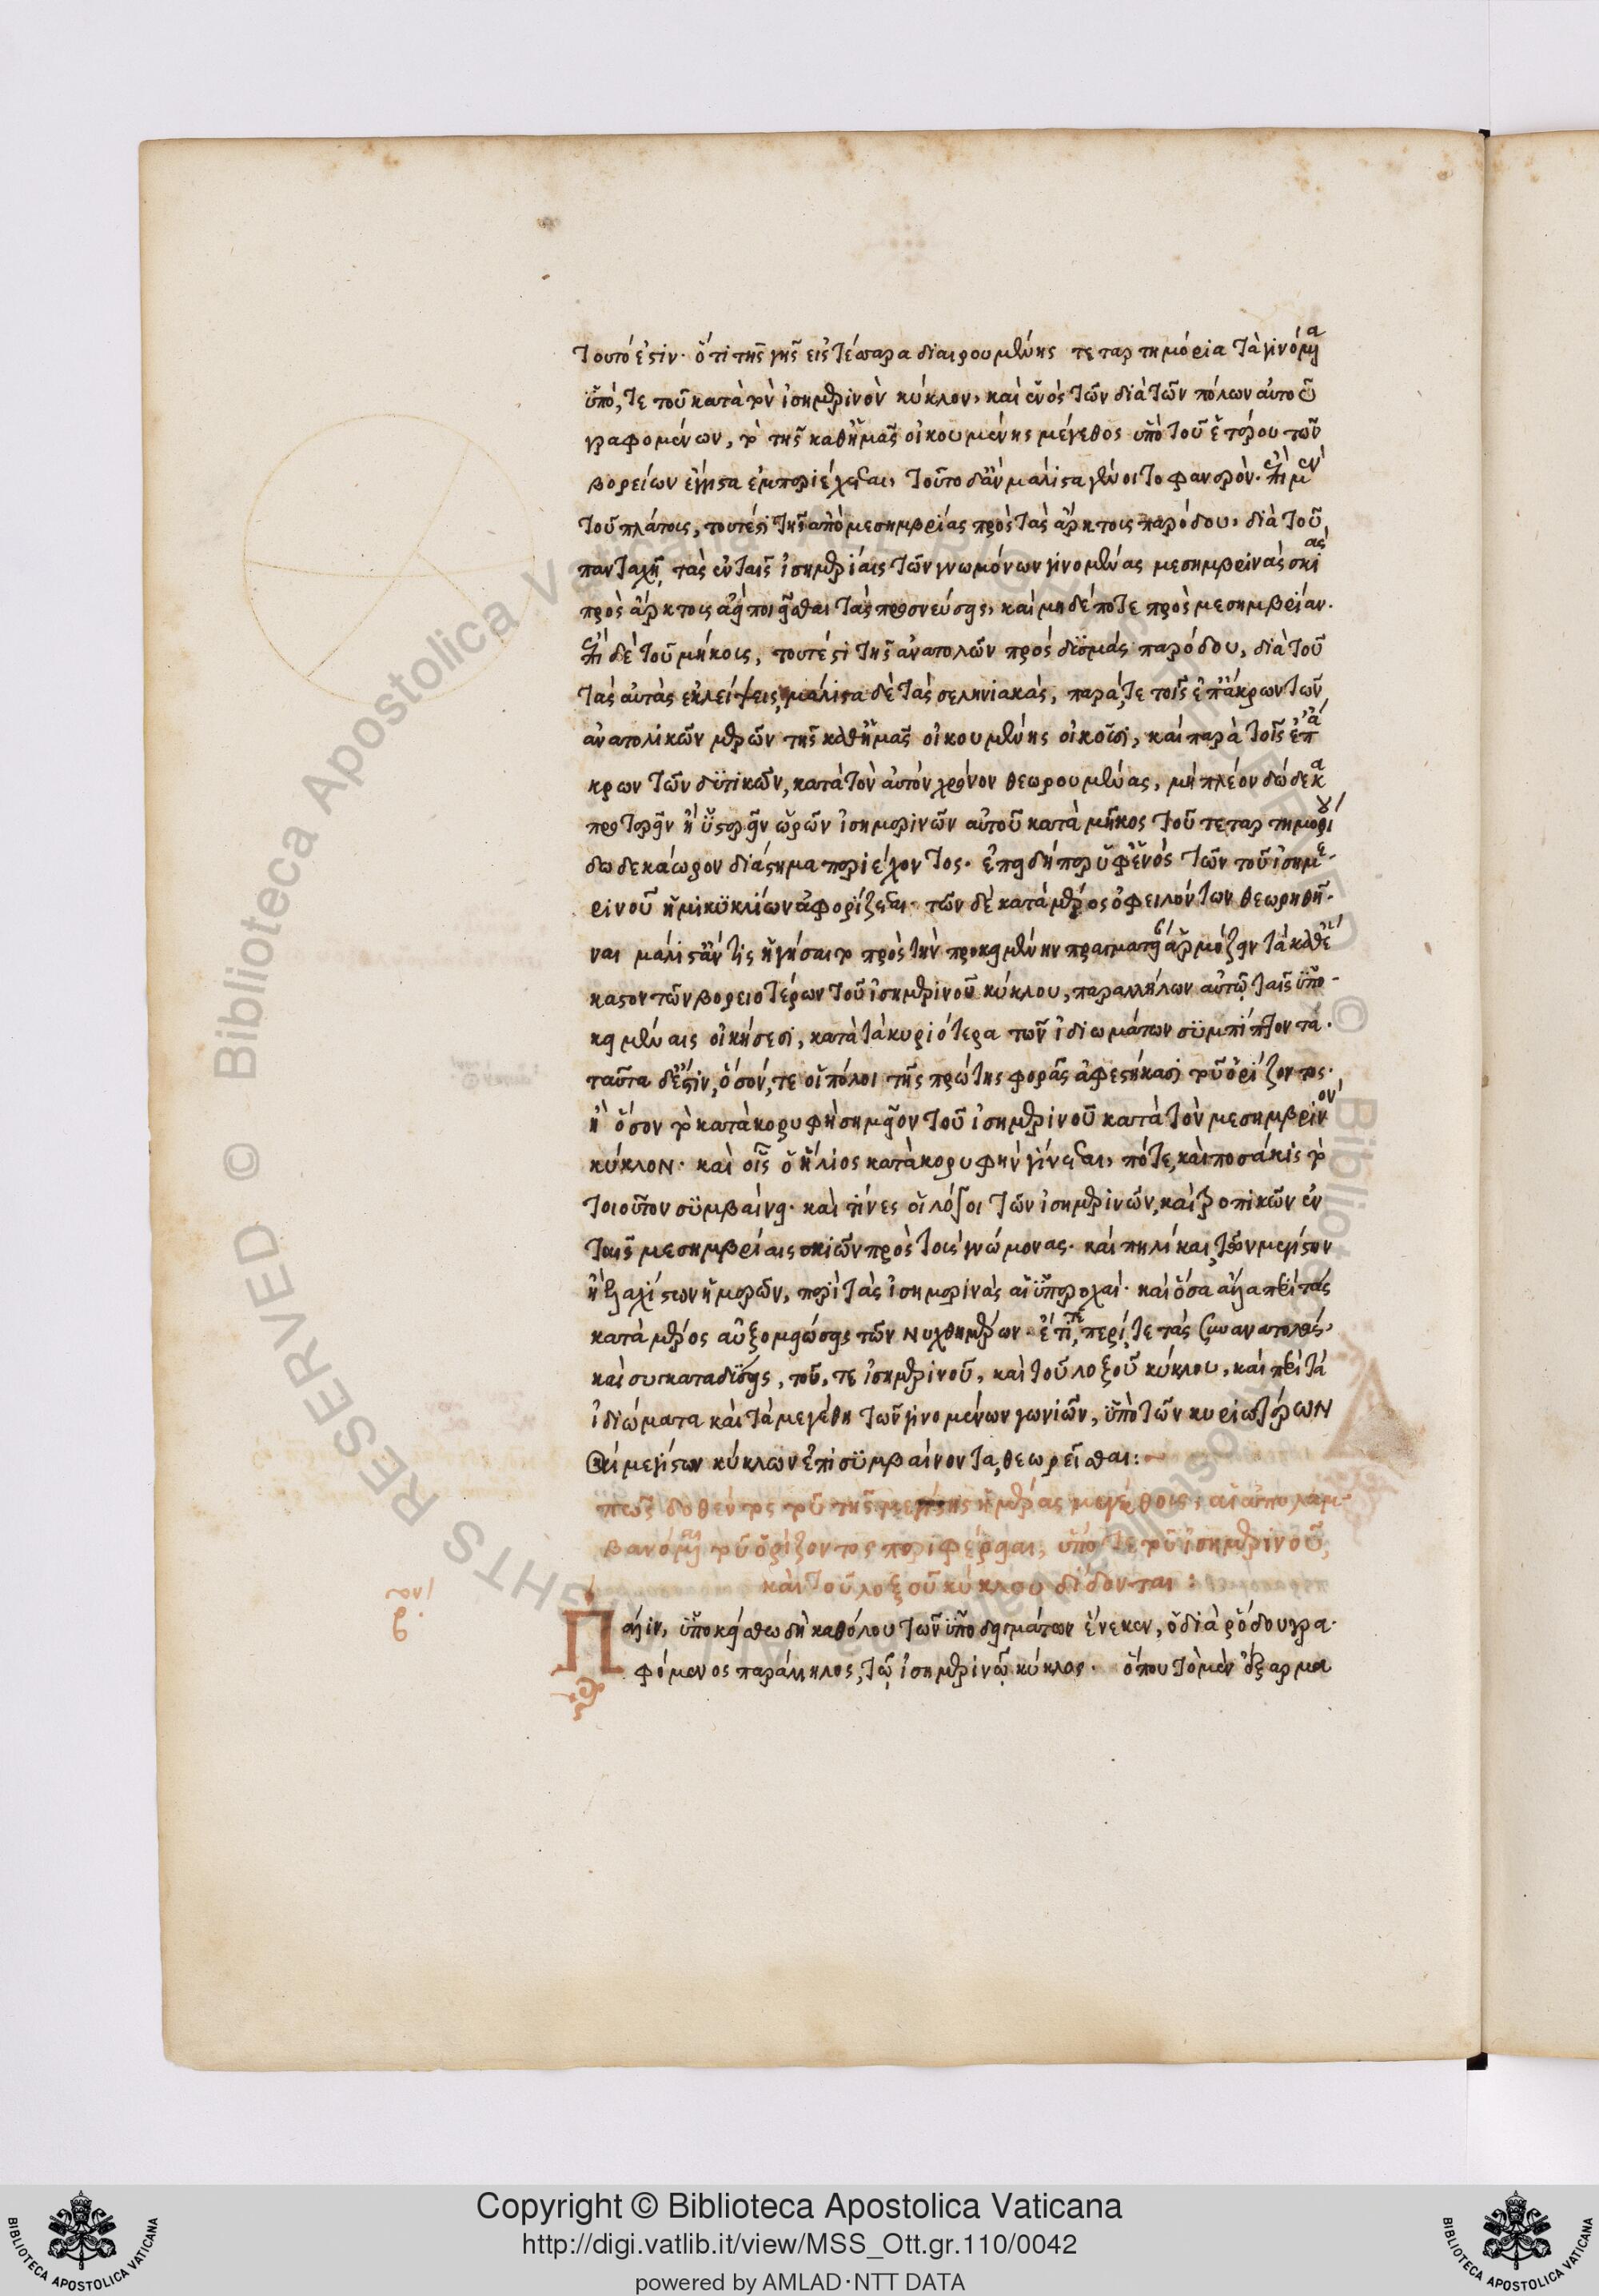 τουτό ἐστιν· ὅτι τῆς γῆς εἰς τέσσαρα διαιρουμένης τεταρτημόρια τὰ γινόμενα
ὑπό, τε τοῦ κατὰ τὸν ἰσημερινὸν κύκλον, καὶ ἑνὸς τῶν διὰ τῶν πόλων αὐτοῦ
γραφομένων, τὸ τῆς καθ' ἡμᾶς οἰκουμένης μέγεθος ὑπὸ τοῦ ἑτέρου τῶν
βορείων ἔγγιστα ἐμπεριέχεται, τοῦτο δ' ἂν μάλιστα γένοιτο φανερὸν. ἐπὶ μὲν
τοῦ πλάτους, τουτέστι τῆς ἀπὸ μεσημβρίας πρὸς τὰς ἄρκτους παρόδου, διὰ τοῦ
πανταχῇ τὰς ἐν ταῖς ἰσημερίαις τῶν γνωμόνων γινομένας μεσημβρινὰς σκιὰς
πρὸς ἄρκτους ἀεὶ ποιεῖσθαι τὰς προσνεύσεις, καὶ μηδέποτε πρὸς μεσημβρίαν.
ἐπὶ δὲ τοῦ μήκους, τουτέστι τῆς ἀνατολῶν πρὸς δϋσμὰς παρόδου, διὰ τοῦ
τὰς αὐτὰς ἐκλείψεις, μάλιστα δὲ τὰς σεληνιακὰς, παρά, τε τοῖς ἐπ' ἄκρων τῶν
ἀνατολικῶν μερῶν τῆς καθ' ἡμᾶς οἰκουμένης οἰκοῦσι, καὶ παρὰ τοῖς ἐπ' ἄ
κρων τῶν δϋτικῶν, κατὰ τὸν αὐτὸν χρόνον θεωρουμένας, μὴ πλέον δώδεκα
προτερεῖν ἢ ὑστερεῖν ὡρῶν ἰσημερινῶν αὐτοῦ κατὰ μῆκος τοῦ τεταρτημορίου
δωδεκάωρον διάστημα περιέχοντος. ἐπειδήπερ ὑφ' ἑνὸς τῶν τοῦ ἰσημε-
ρινοῦ ἡμικϋκλίων ἀφορίζεται. τῶν δὲ κατὰ μέρος ὀφειλόντων θεωρηθῆ-
ναι μάλιστ' ἄν τις ἡγήσαιτο πρὸς τὴν προκειμένην πραγματείαν ἁρμόζειν τὰ καθ' ἕ
καστον τῶν βορειοτέρων τοῦ ἰσημερινοῦ κύκλου, παραλλήλων αὐτῷ ταῖς ὑπο-
κειμέναις οἰκήσεσι, κατὰ τὰ κυριότερα τῶν ἰδιωμάτων σϋμπίπτοντα.
ταῦτα δέ ἐστιν, ὅσον, τε οἱ πόλοι τῆς πρώτης φορᾶς ἀφεστήκασι τοῦ ὁρίζοντος.
ἢ ὅσον τὸ κατὰ κορυφὴ σημεῖον τοῦ ἰσημερινοῦ κατὰ τὸν μεσημβρινὸν
κύκλον. καὶ οἷς ὁ ἥλιος κατὰ κορυφὴν γίνεται, πότε, καὶ ποσάκις τὸ
τοιοῦτον σϋμβαίνει. καὶ τίνες οἱ λόγοι τῶν ἰσημερινῶν, καὶ τροπικῶν ἐν
ταῖς μεσημβρίαις σκιῶν πρὸς τοὺς γνώμονας. καὶ πηλίκαι, τῶν μεγίστων
ἢ ἐλαχίστων ἡμερῶν, περὶ τὰς ἰσημερινὰς αἱ ὑπεροχαί. καὶ ὅσα ἄλλα περὶ τὰς
κατὰ μέρος αὐξομειώσεις τῶν νυχθημέρων. ἔτι, τε περί, τε τὰς συνανατολὰς,
καὶ συγκαταδϋσεις, τοῦ, τε ἰσημερινοῦ, καὶ τοῦ λοξοῦ κύκλου, καὶ περὶ τὰ
ἰδιώματα καὶ τὰ μεγέθη τῶν γινομένων γωνιῶν, ὑπὸ τῶν κυριωτέρων
καὶ μεγίστων κύκλων ἐπισϋμβαίνοντα, θεωρεῖσθαι:
πῶς δοθέντος τοῦ τῆς μεγίστης ἡμέρας μεγέθους, αἱ ἀπολαμ-
βανόμεναι τοῦ ὁρίζοντος περιφέρειαι, ὑπό τε τοῦ ἰσημερινοῦ,
καὶ τοῦ λοξοῦ κύκλου δίδονται:
Πάλιν, ὑποκείσθω δὴ καθόλου τῶν ὑποδειγμάτων ἕνεκεν, ὁ διὰ ῥόδου γρα-
φόμενος παράλληλος, τῷ ἰσημερινῷ κύκλος. ὅπου τὸ μὲν ἔξαρμα